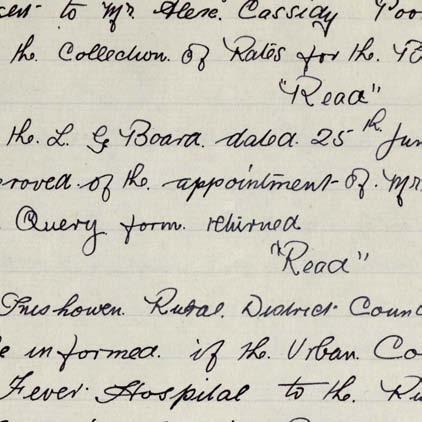 to Mr. Alexr. Cassidy Poor
the Collection of Rates for the
"Read"
the. L. G Board. dated. 25th Jun
roved. of the. appointment of. Mr
Query form. returned
"Read"
Inishowen. Rural. District Counc
informed. if the. Urban. Co
Fever Hospital to the. Ru